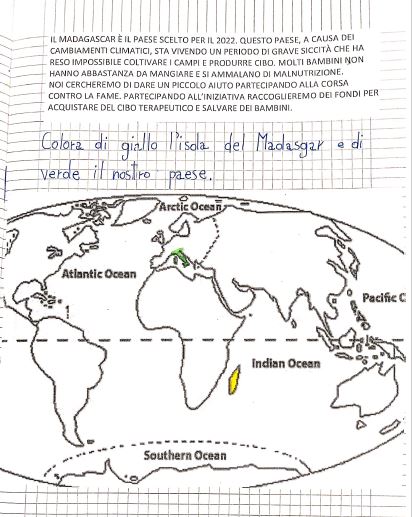 IL MADAGASCAR È IL PAESE SCELTO PER IL 2022. QUESTO PAESE, A CAUSA DEI
CAMBIAMENTI CLIMATICI, STA VIVENDO UN PERIODO DI GRAVE SICCITÀ CHE HA
RESO IMPOSSIBILE COLTIVARE I CAMPI E PRODURRE CIBO. MOLTI BAMBINI NON
HANNO ABBASTANZA DA MANGIARE E SI AMMALANO DI MALNUTRIZIONE.
NOI CERCHEREMO DI DARE UN PICCOLO AIUTO PARTECIPANDO ALLA CORSA
CONTRO LA FAME. PARTECIPANDO ALL'INIZIATIVA RACCOGLIEREMO DEI FONDI PER
ACQUISTARE DEL CIBO TERAPEUTICO E SALVARE DEI BAMBINI.
Colora di giallo l'isola del Madasgar e di
verde il nostro paese.
Arctic Ocean
Atlantic Ocean
Pacific O
Indian Ocean
Southern Ocean